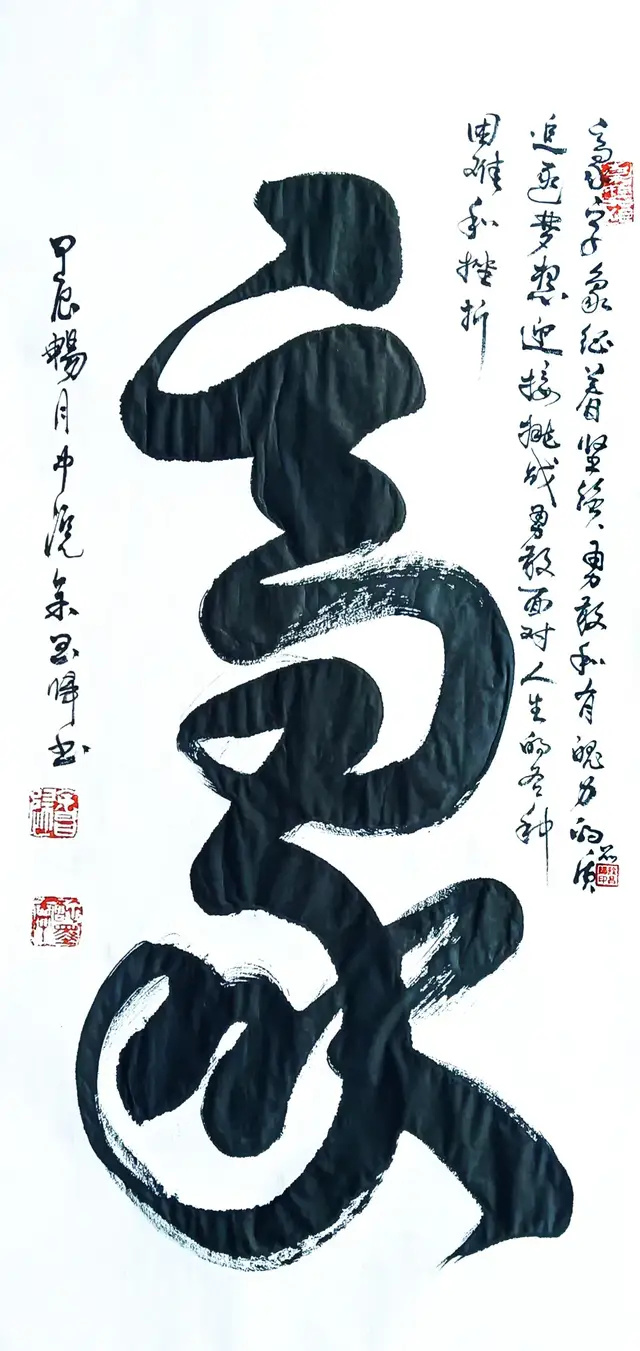 豪字象征着坚强、勇敢和有魄力的
追逐梦想迎接挑战勇敢面对人生的各种
困难和挫折
豪
甲辰暢月中浣余书